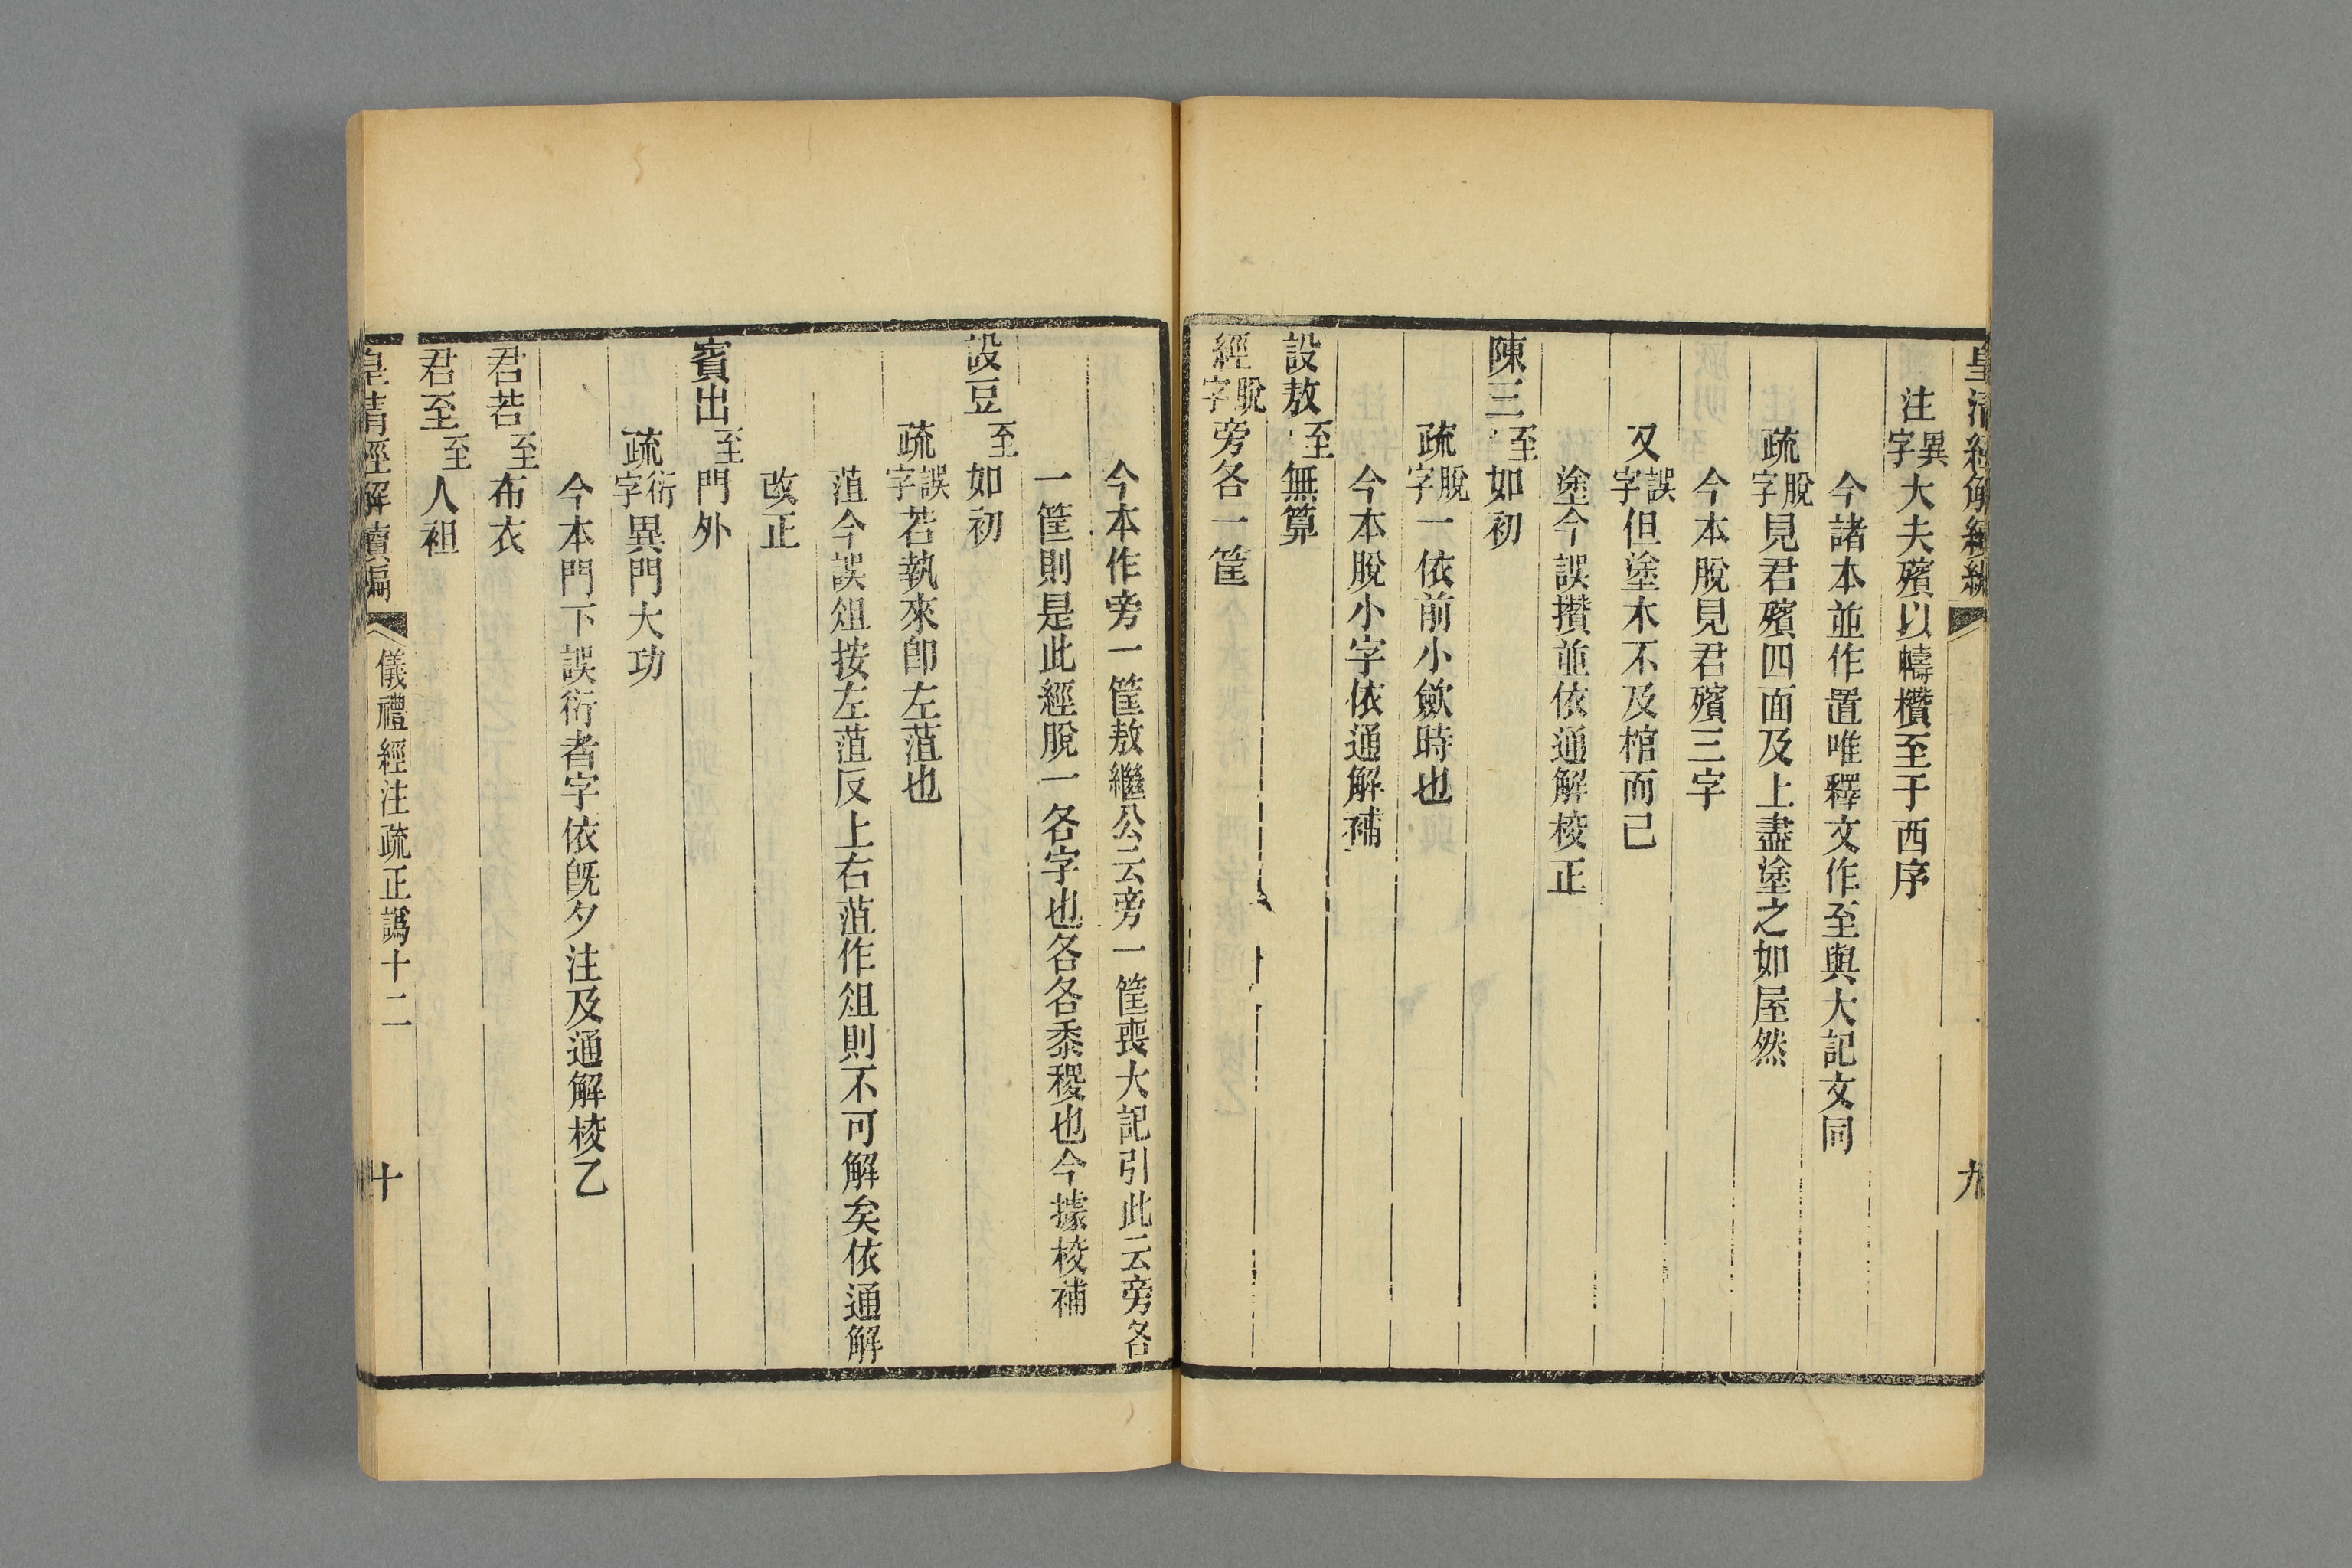 皇清經解續編
九
注異字大夫殯以幬欑至于西序
今諸本並作置唯釋文作至與大記文同
疏脫字見君殯四面及上盡塗之如屋然
今本脫見君殯三字
又誤字但塗木不及棺而已
塗今誤攢並依通解校正
陳三至如初
疏脫字一依前小歛時也
今本脫小字依通解補
設敖至無算
經脫字旁各一筐
今本作旁一筐敖繼公云旁一筐喪大記引此云旁各
一筐則是此經脫一各字也各各黍稷也今據校補
設豆至如初
疏誤字若執來卽左菹也
菹今誤俎按左菹反上右菹作俎則不可解矣依通解
改正
賓出至門外
疏衍字異門大功
今本門下誤衍者字依旣夕注及通解校乙
君若至布衣
君至至人袒
皇清經解續編
儀禮經注疏正譌十二
十